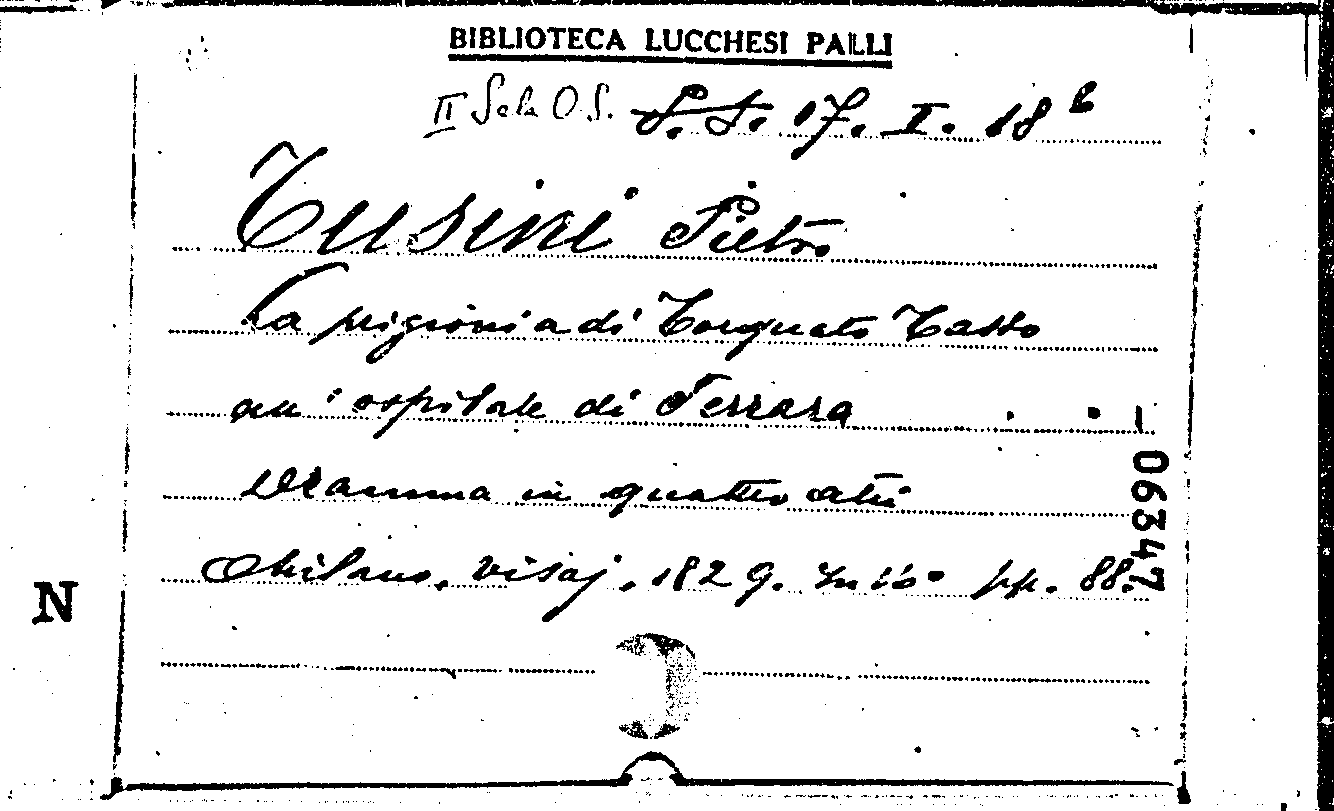 BIBLIOTECA LUCCHESI PALLI
II Sala O.S. S. T. 17. I. 18 b
Tusini Pietro
La prigionia di Torquato Tasso
all'ospitale di Ferrara
Dramma in quattro atti
Milano, Visaj, 1829. In 16° pp. 88.
06347
N